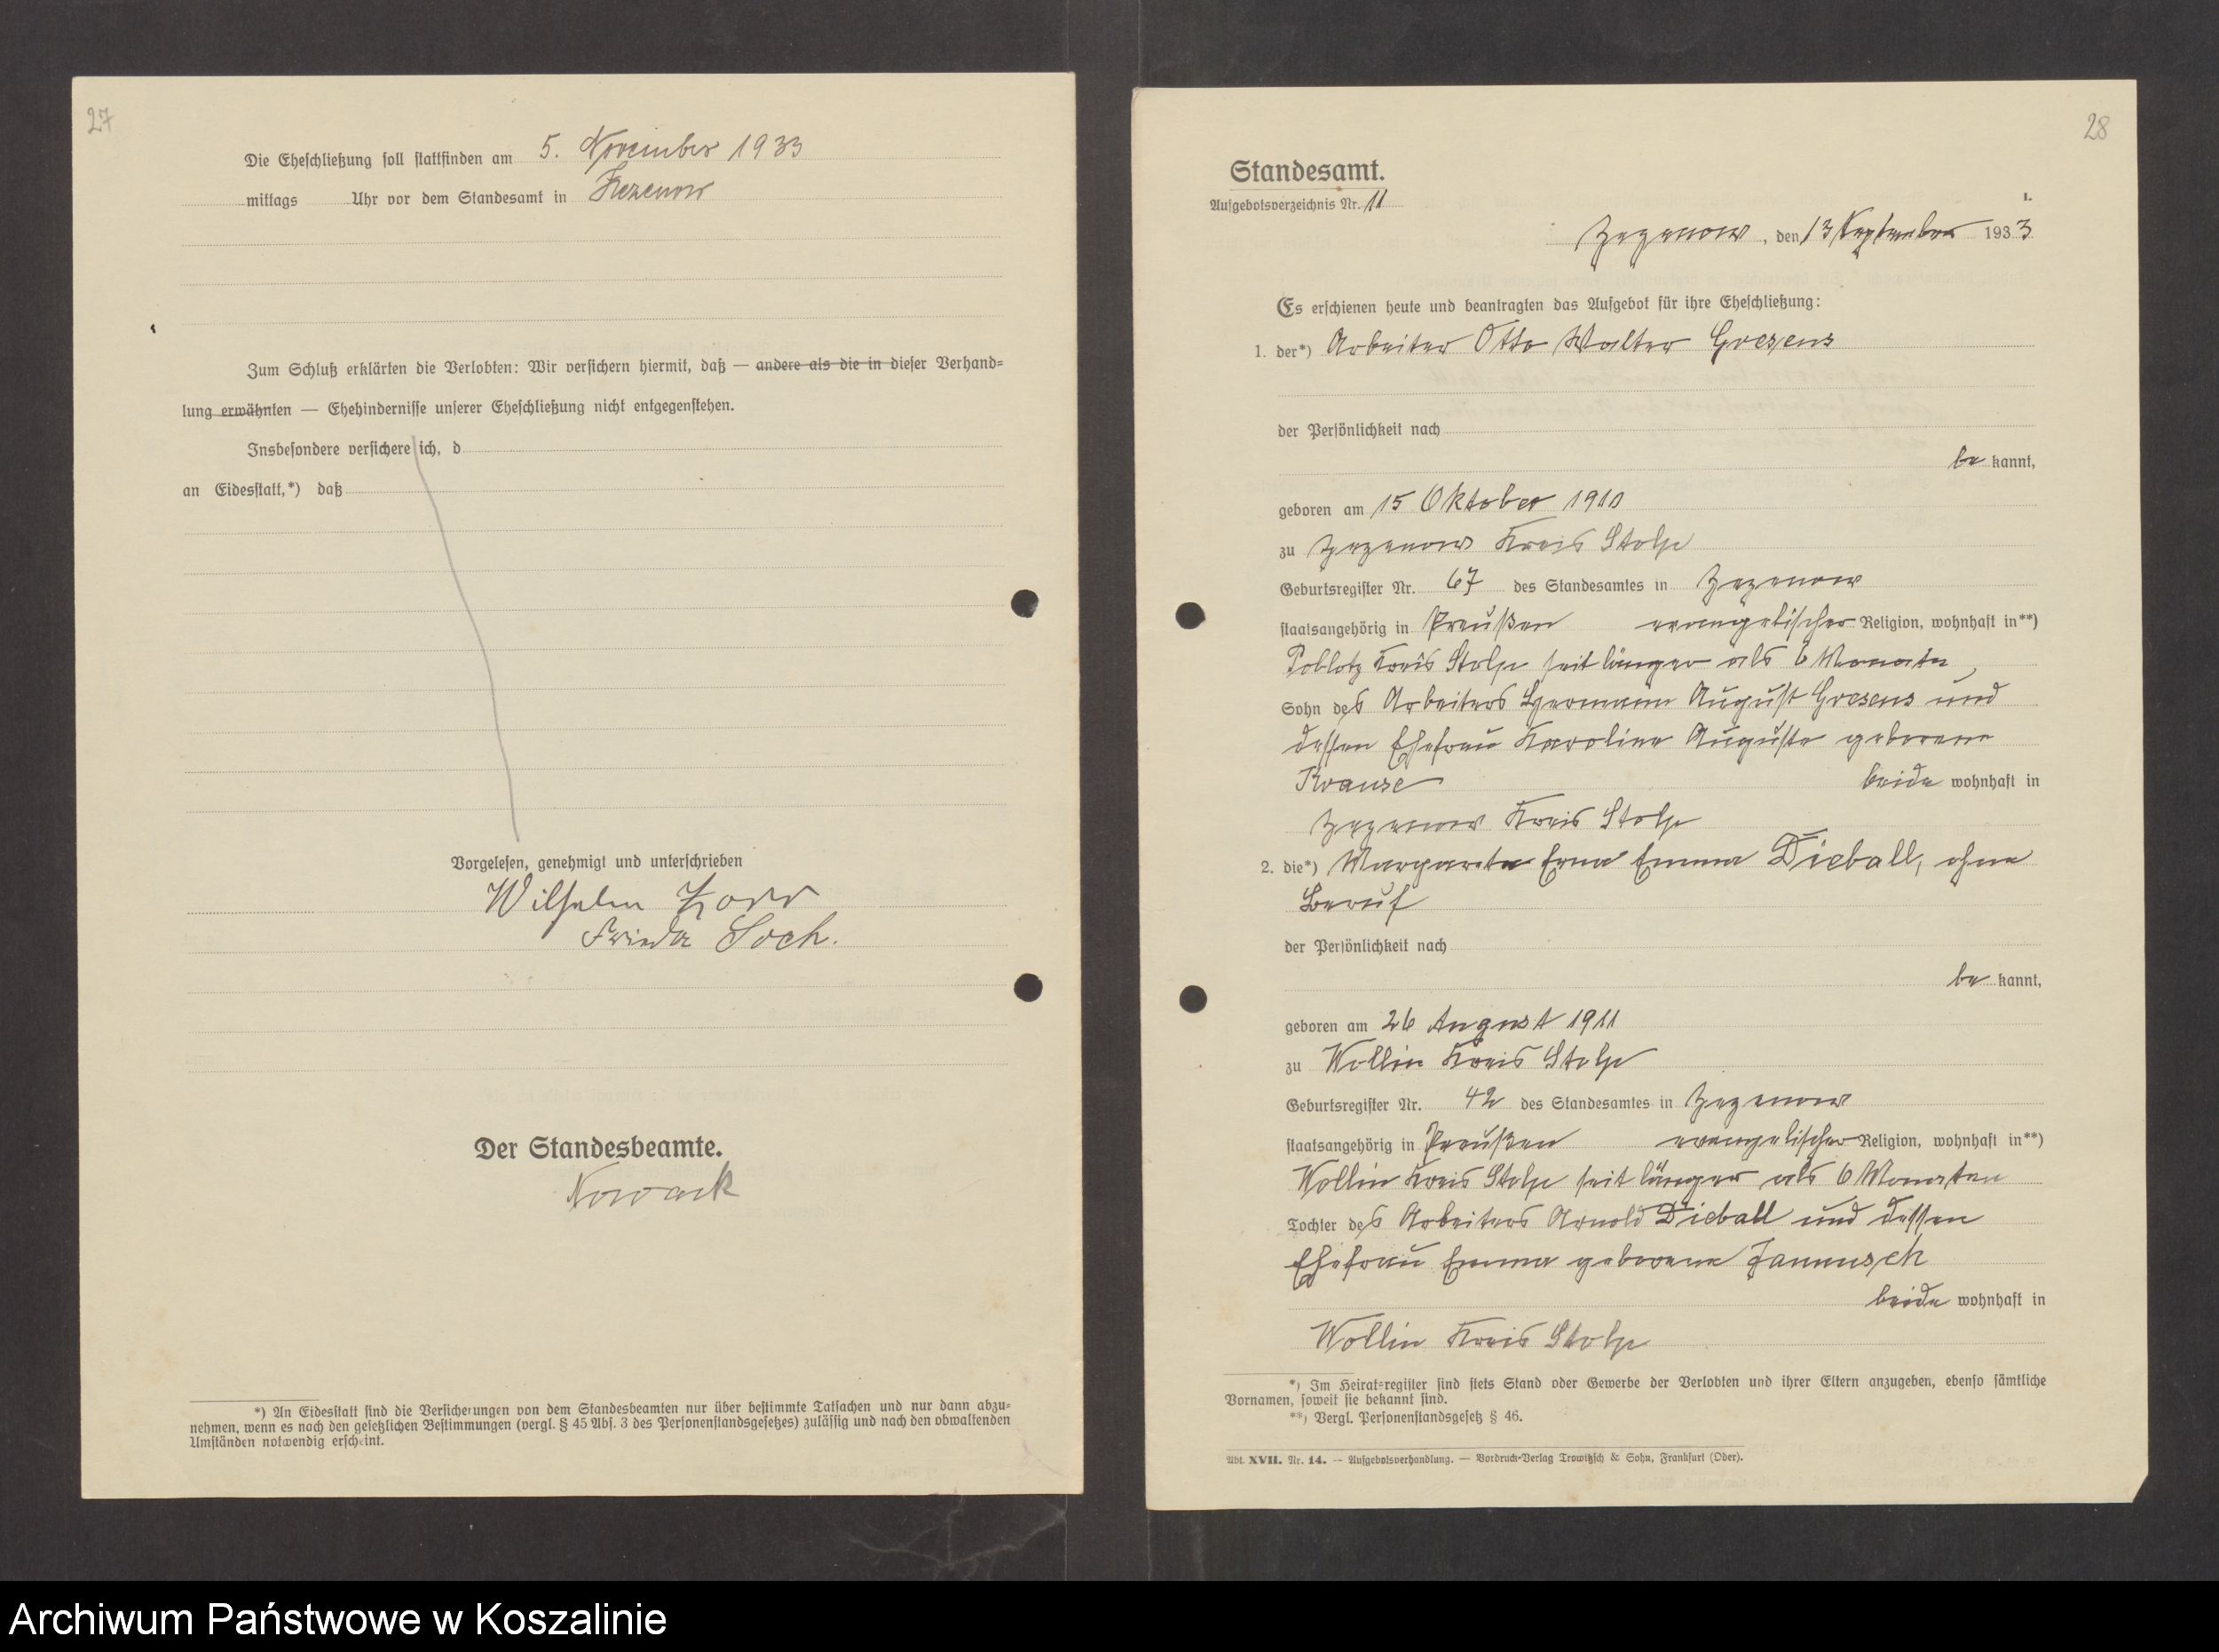 27
Die Eheschließung soll stattfinden am 5. November 1933
mittags Uhr vor dem Standesamt in Zezenow
Zum Schluß erklärten die Verlobten: Wir versichern hiermit, daß — andere als die in dieser Verhand-
lung erwähnten — Ehehindernisse unserer Eheschließung nicht entgegenstehen.
Insbesondere versichere ich, d
an Eidesstatt,*) daß
Vorgelesen, genehmigt und unterschrieben
Wilhelm
Frieda Soch.
Der Standesbeamte.
Nowack
*) An Eidesstatt sind die Versicherungen von dem Standesbeamten nur über bestimmte Tatsachen und nur dann abzu-
nehmen, wenn es nach den gesetzlichen Bestimmungen (vergl. § 45 Abs. 3 des Personenstandsgesetzes) zulässig und nach den obwaltenden
Umständen notwendig erscheint.
28
Standesamt.
Aufgebotsverzeichnis Nr. 11
1.
Zezenow, den 13 September 1933
Es erschienen heute und beantragten das Aufgebot für ihre Eheschließung:
1. der*) Arbeiter Otto Walter Gresens
der Persönlichkeit nach
be kannt,
geboren am 15 Oktober 1910
zu Zezenow Kreis Stolp
Geburtsregister Nr. 67 des Standesamtes in Zezenow
staatsangehörig in Preußen evangelischer Religion, wohnhaft in**)
Poblotz Kreis Stolp seit länger als 6 Monaten,
Sohn des Arbeiters Hermann August Gresens und
dessen Ehefrau Karoline Auguste geborene
Krause beide wohnhaft in
Zezenow Kreis Stolp
2. die*) Margarete Erna Emma Dieball, ohne
Beruf
der Persönlichkeit nach
be kannt,
geboren am 26 August 1911
zu Wollin Kreis Stolp
Geburtsregister Nr. 42 des Standesamtes in Zezenow
staatsangehörig in Preußen evangelischer Religion, wohnhaft in**)
Wollin Kreis Stolp seit länger als 6 Monaten
Tochter des Arbeiters Arnold Dieball und dessen
Ehefrau Emma geborene Jannusch
beide wohnhaft in
Wollin Kreis Stolp
*) Im Heiratsregister sind stets Stand oder Gewerbe der Verlobten und ihrer Eltern anzugeben, ebenso sämtliche
Vornamen, soweit sie bekannt sind.
**) Vergl. Personenstandsgesetz § 46.
Abt. XVII. Nr. 14. — Aufgebotsverhandlung. — Vordruck-Verlag Trowitzsch & Sohn, Frankfurt (Oder).
Archiwum Państwowe w Koszalinie